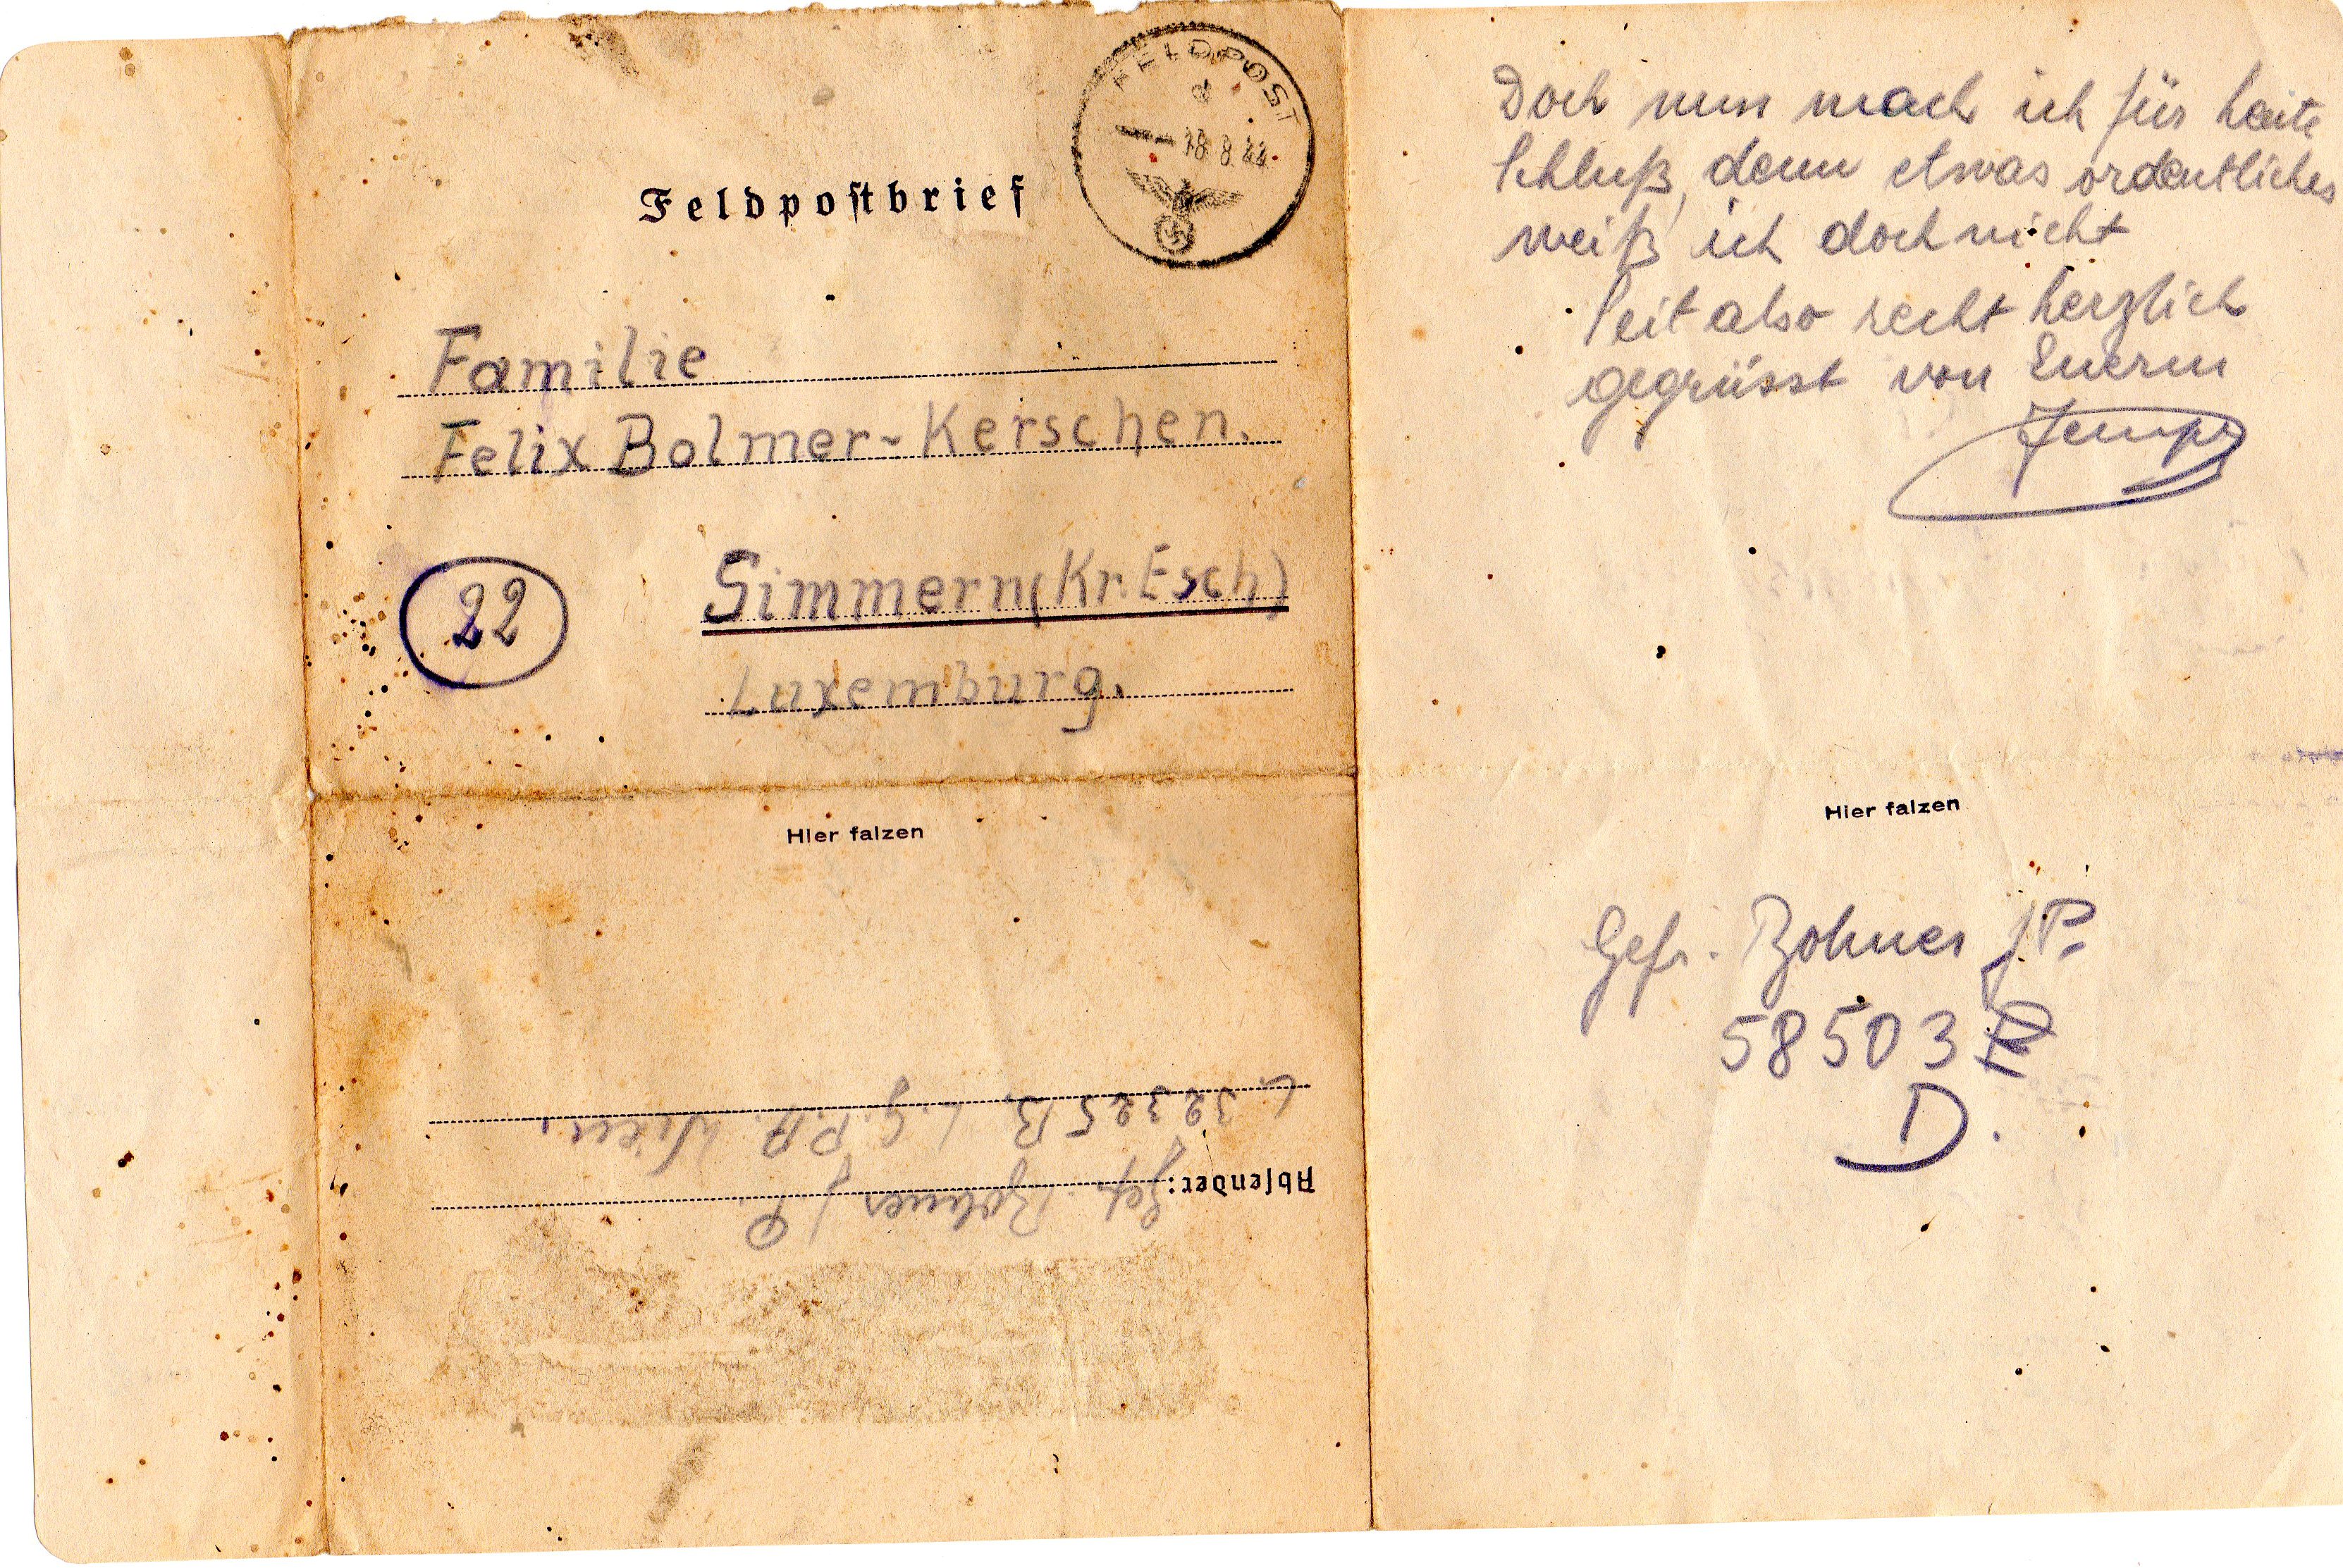 Feldpostbrief
FELDPOST
d
18.8.44
Familie
Felix Bolmer-Kerschen.
22
Simmern (Kr. Esch)
Luxemburg.
Hier falzen
Absender: Gefr. Bohner J P.
L 32325 B, L.G.P.A. Wien.
Doch nun mach ich für heute
Schluß, denn etwas ordentliches
weiß ich doch nicht
Seit also recht herzlich
gegrüsst von Euerm
Jempi
Hier falzen
Gefr. Bohner J P.
58503
D.